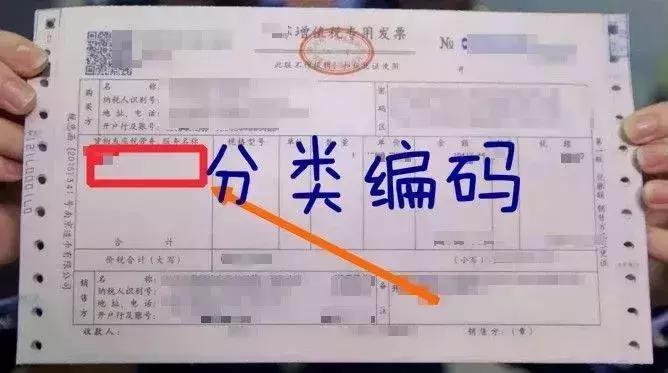 增值税专用发票
№
此联不作报销、扣税凭证使用
购买方
名　　称：
纳税人识别号：
地址、电话：
开户行及账号：
密码区
货物或应税劳务、服务名称 规格型号 单位 数量 单价 金额 税率 税额
分类编码
合　　计
价税合计（大写） （小写）
销售方
名　　称：
纳税人识别号：
地址、电话：
开户行及账号：
备注
收款人： 销售方：（章）